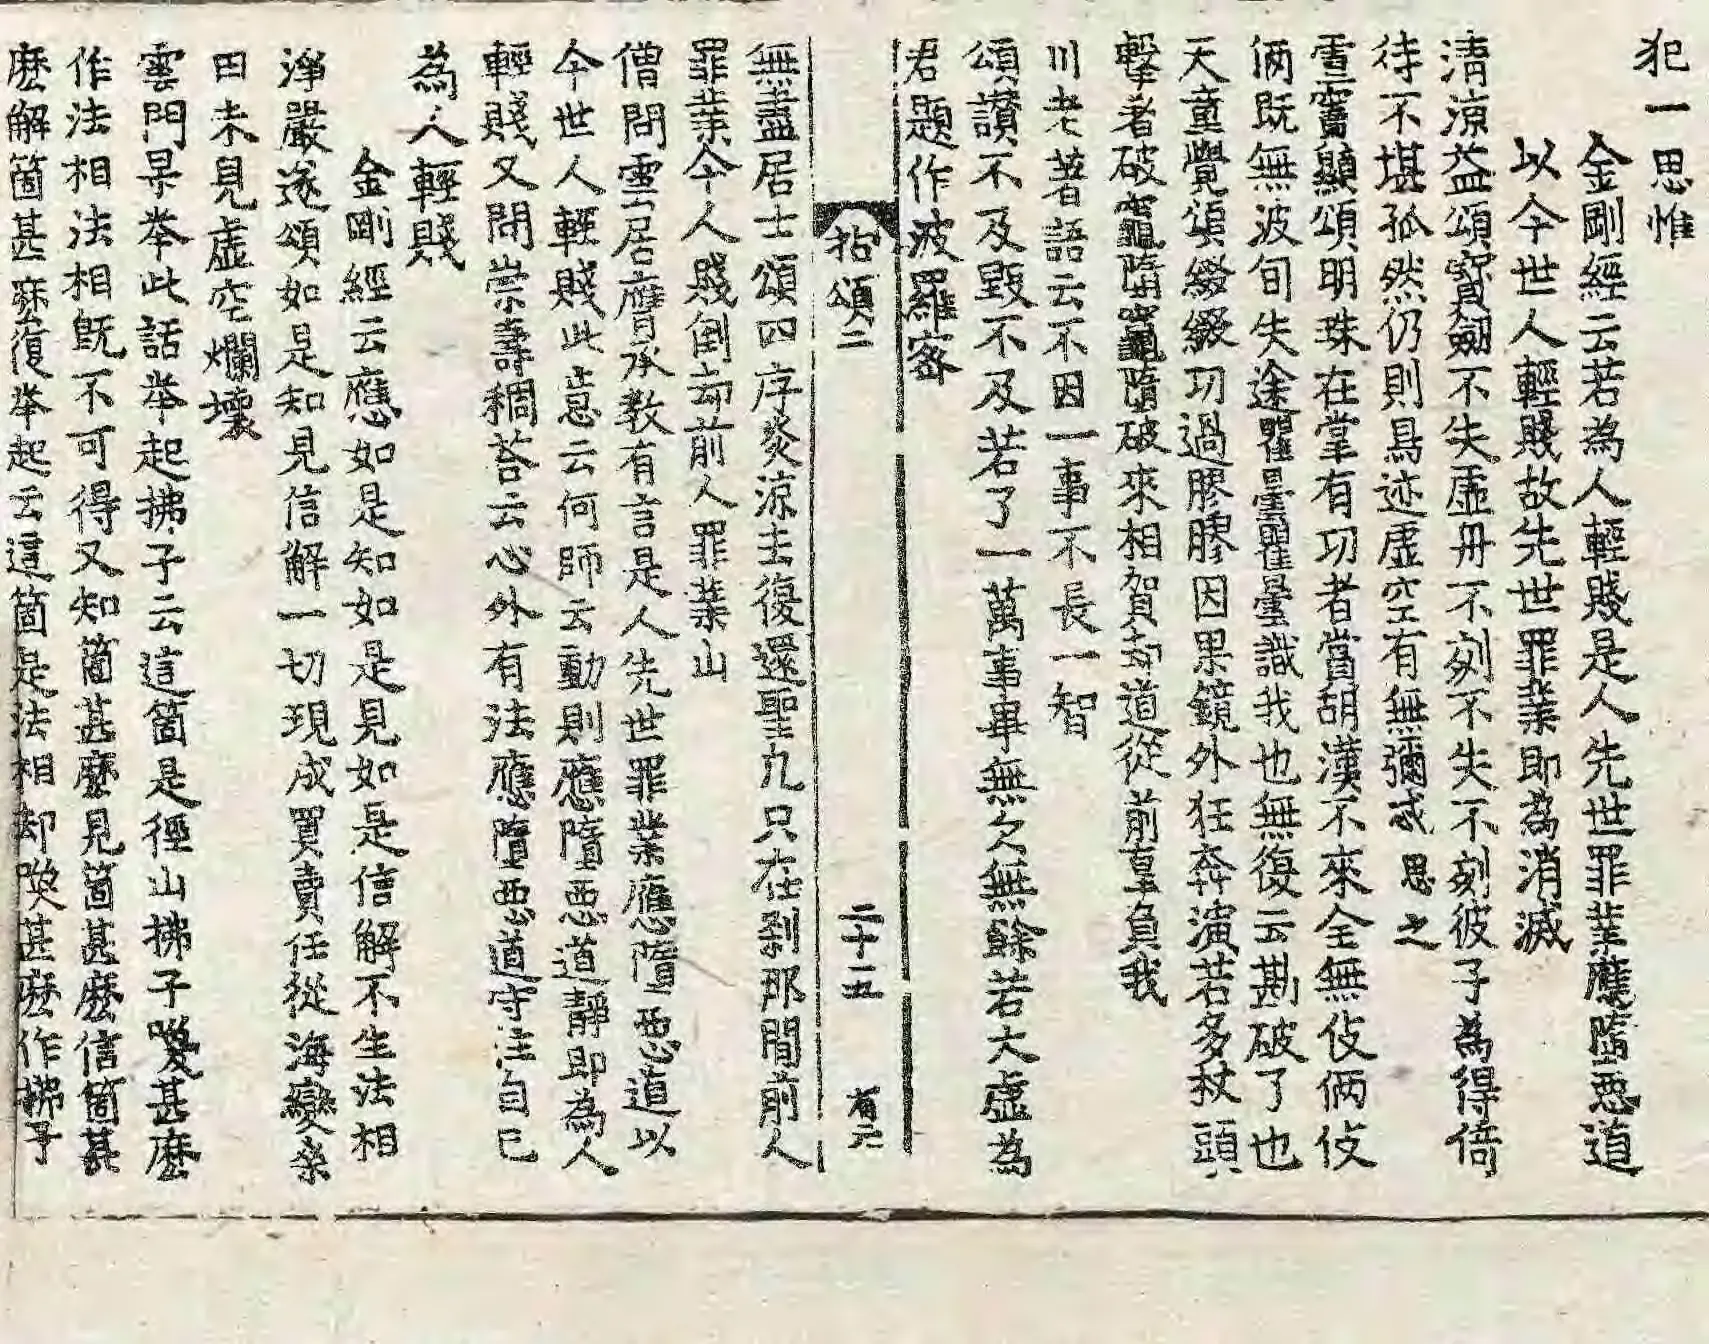 犯一思惟
金剛經云若為人輕賤是人先世罪業應墮惡道
以今世人輕賤故先世罪業即為消滅
清涼益頌寶劒不失虛舟不刻不失不刻彼子為得倚
待不堪孤然仍則鳥迹虛空有無彌忒思之
雪竇顯頌明珠在掌有功者當胡漢不來全無伎倆伎
倆既無波旬失途瞿曇瞿曇識我也無復云勘破了也
天童覺頌綴綴功過膠膠因果鏡外狂奔演若多杖頭
擊著破竈墮竈墮破來相賀却道從前辜負我
川老著語云不因一事不長一智
頌讃不及毀不及若了一萬事畢無欠無餘若大虛為
君題作波羅蜜
拈頌二 二十五 有元
無盡居士頌四序炎涼去復還聖凢只在刹那間前人
罪業今人賤倒却前人罪業山
僧問雲居膺承教有言是人先世罪業應墮惡道以
今世人輕賤此意云何師云動則應墮惡道靜即為人
輕賤又問崇壽稠荅云心外有法應墮惡道守注自己
為人輕賤
金剛經云應如是知如是見如是信解不生法相
淨嚴遂頌如是知見信解一切現成買賣任從海變桑
田未見虛空爛壞
雲門杲举此話举起拂子云這箇是徑山拂子喚甚麽
作法相法相旣不可得又知箇甚麽見箇甚麽信箇甚
麽解箇甚麽復举起云這箇是法相却喚甚麽作拂子